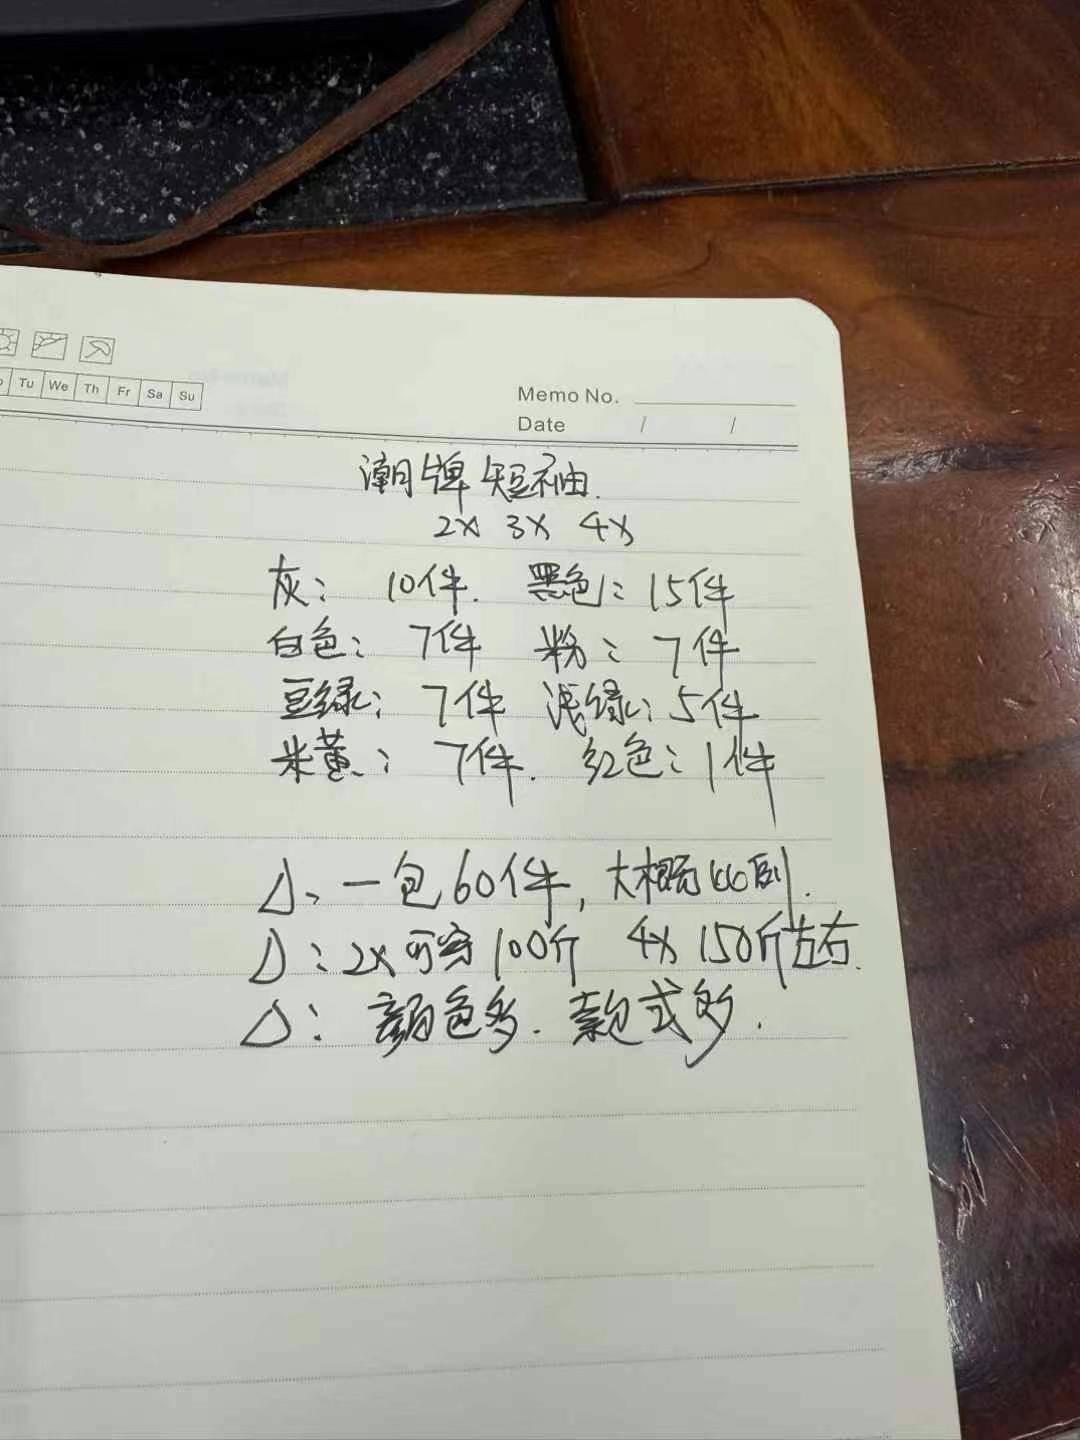 Tu We Th Fr Sa Su
Memo No.
Date / /
潮牌短袖.
2X 3X 4X
灰： 10件. 黑色：15件
白色： 7件 粉：7件
豆绿： 7件 浅绿：5件
米黄： 7件. 红色：1件
△、一包60件, 大概
△：2X可穿100斤 4X 150斤左右.
△：颜色多. 款式多.